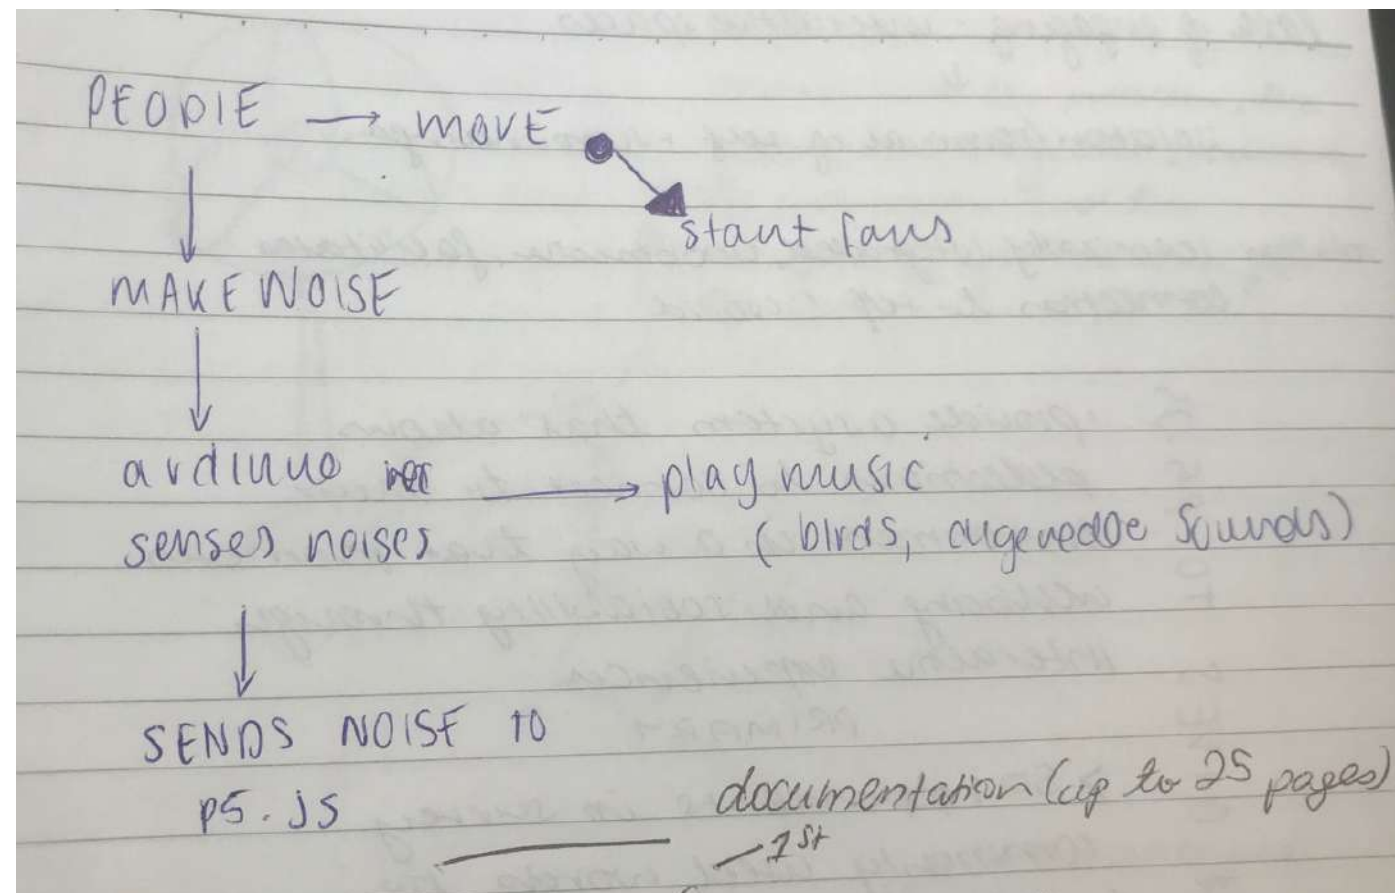 PEOPLE → MOVE
stant fans
MAKE NOISE
arduino
senses noises
→ play music
(birds, sounds)
SENDS NOISE TO
p5.js
documentation (up to 25 pages)
1st